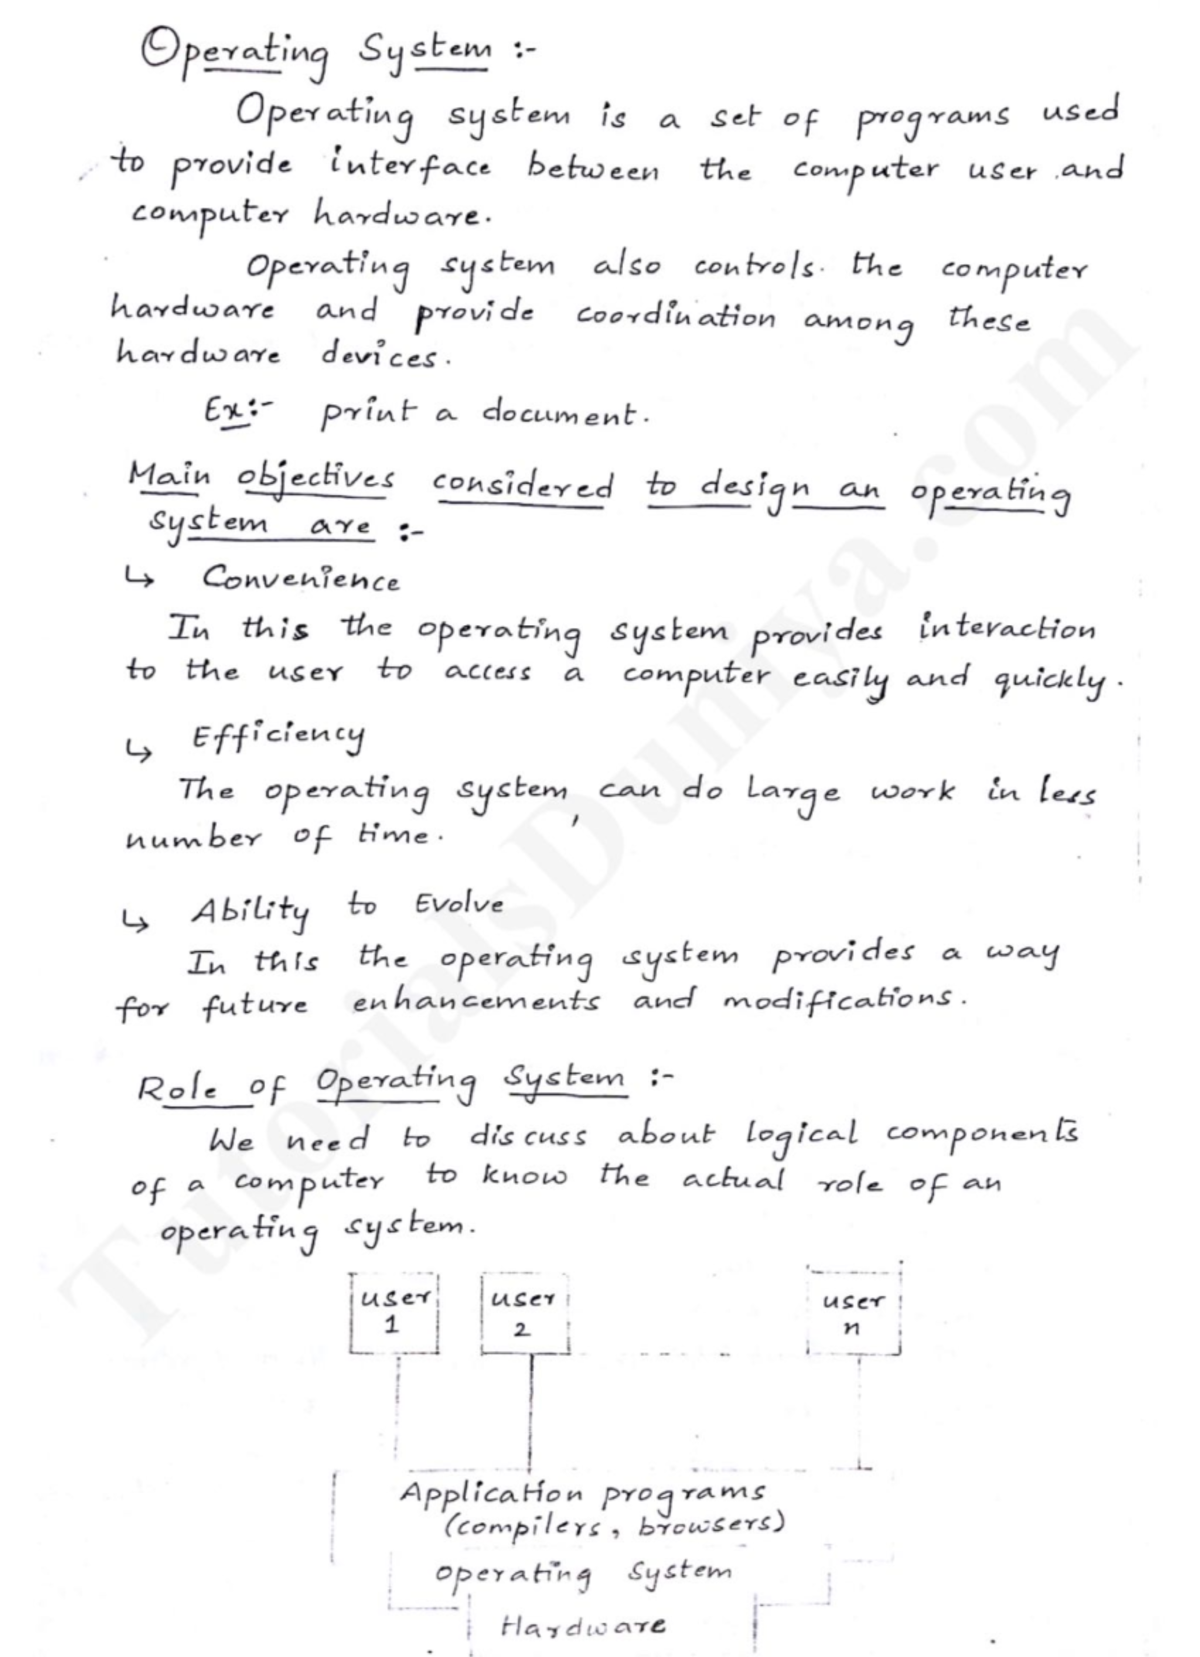 Operating System :-
Operating system is a set of programs used
to provide interface between the computer user and
computer hardware.
Operating system also controls the computer
hardware and provide coordination among these
hardware devices.
Ex:- print a document.
Main objectives considered to design an operating
system are :-
↳ Convenience
In this the operating system provides interaction
to the user to access a computer easily and quickly.
↳ Efficiency
The operating system, can do large work in less
number of time.
↳ Ability to Evolve
In this the operating system provides a way
for future enhancements and modifications.
Role of Operating System :-
We need to discuss about logical components
of a computer to know the actual role of an
operating system.
user 1
user 2
user n
Application programs
(compilers, browsers)
operating system
Hardware
TutorialsDuniya.com